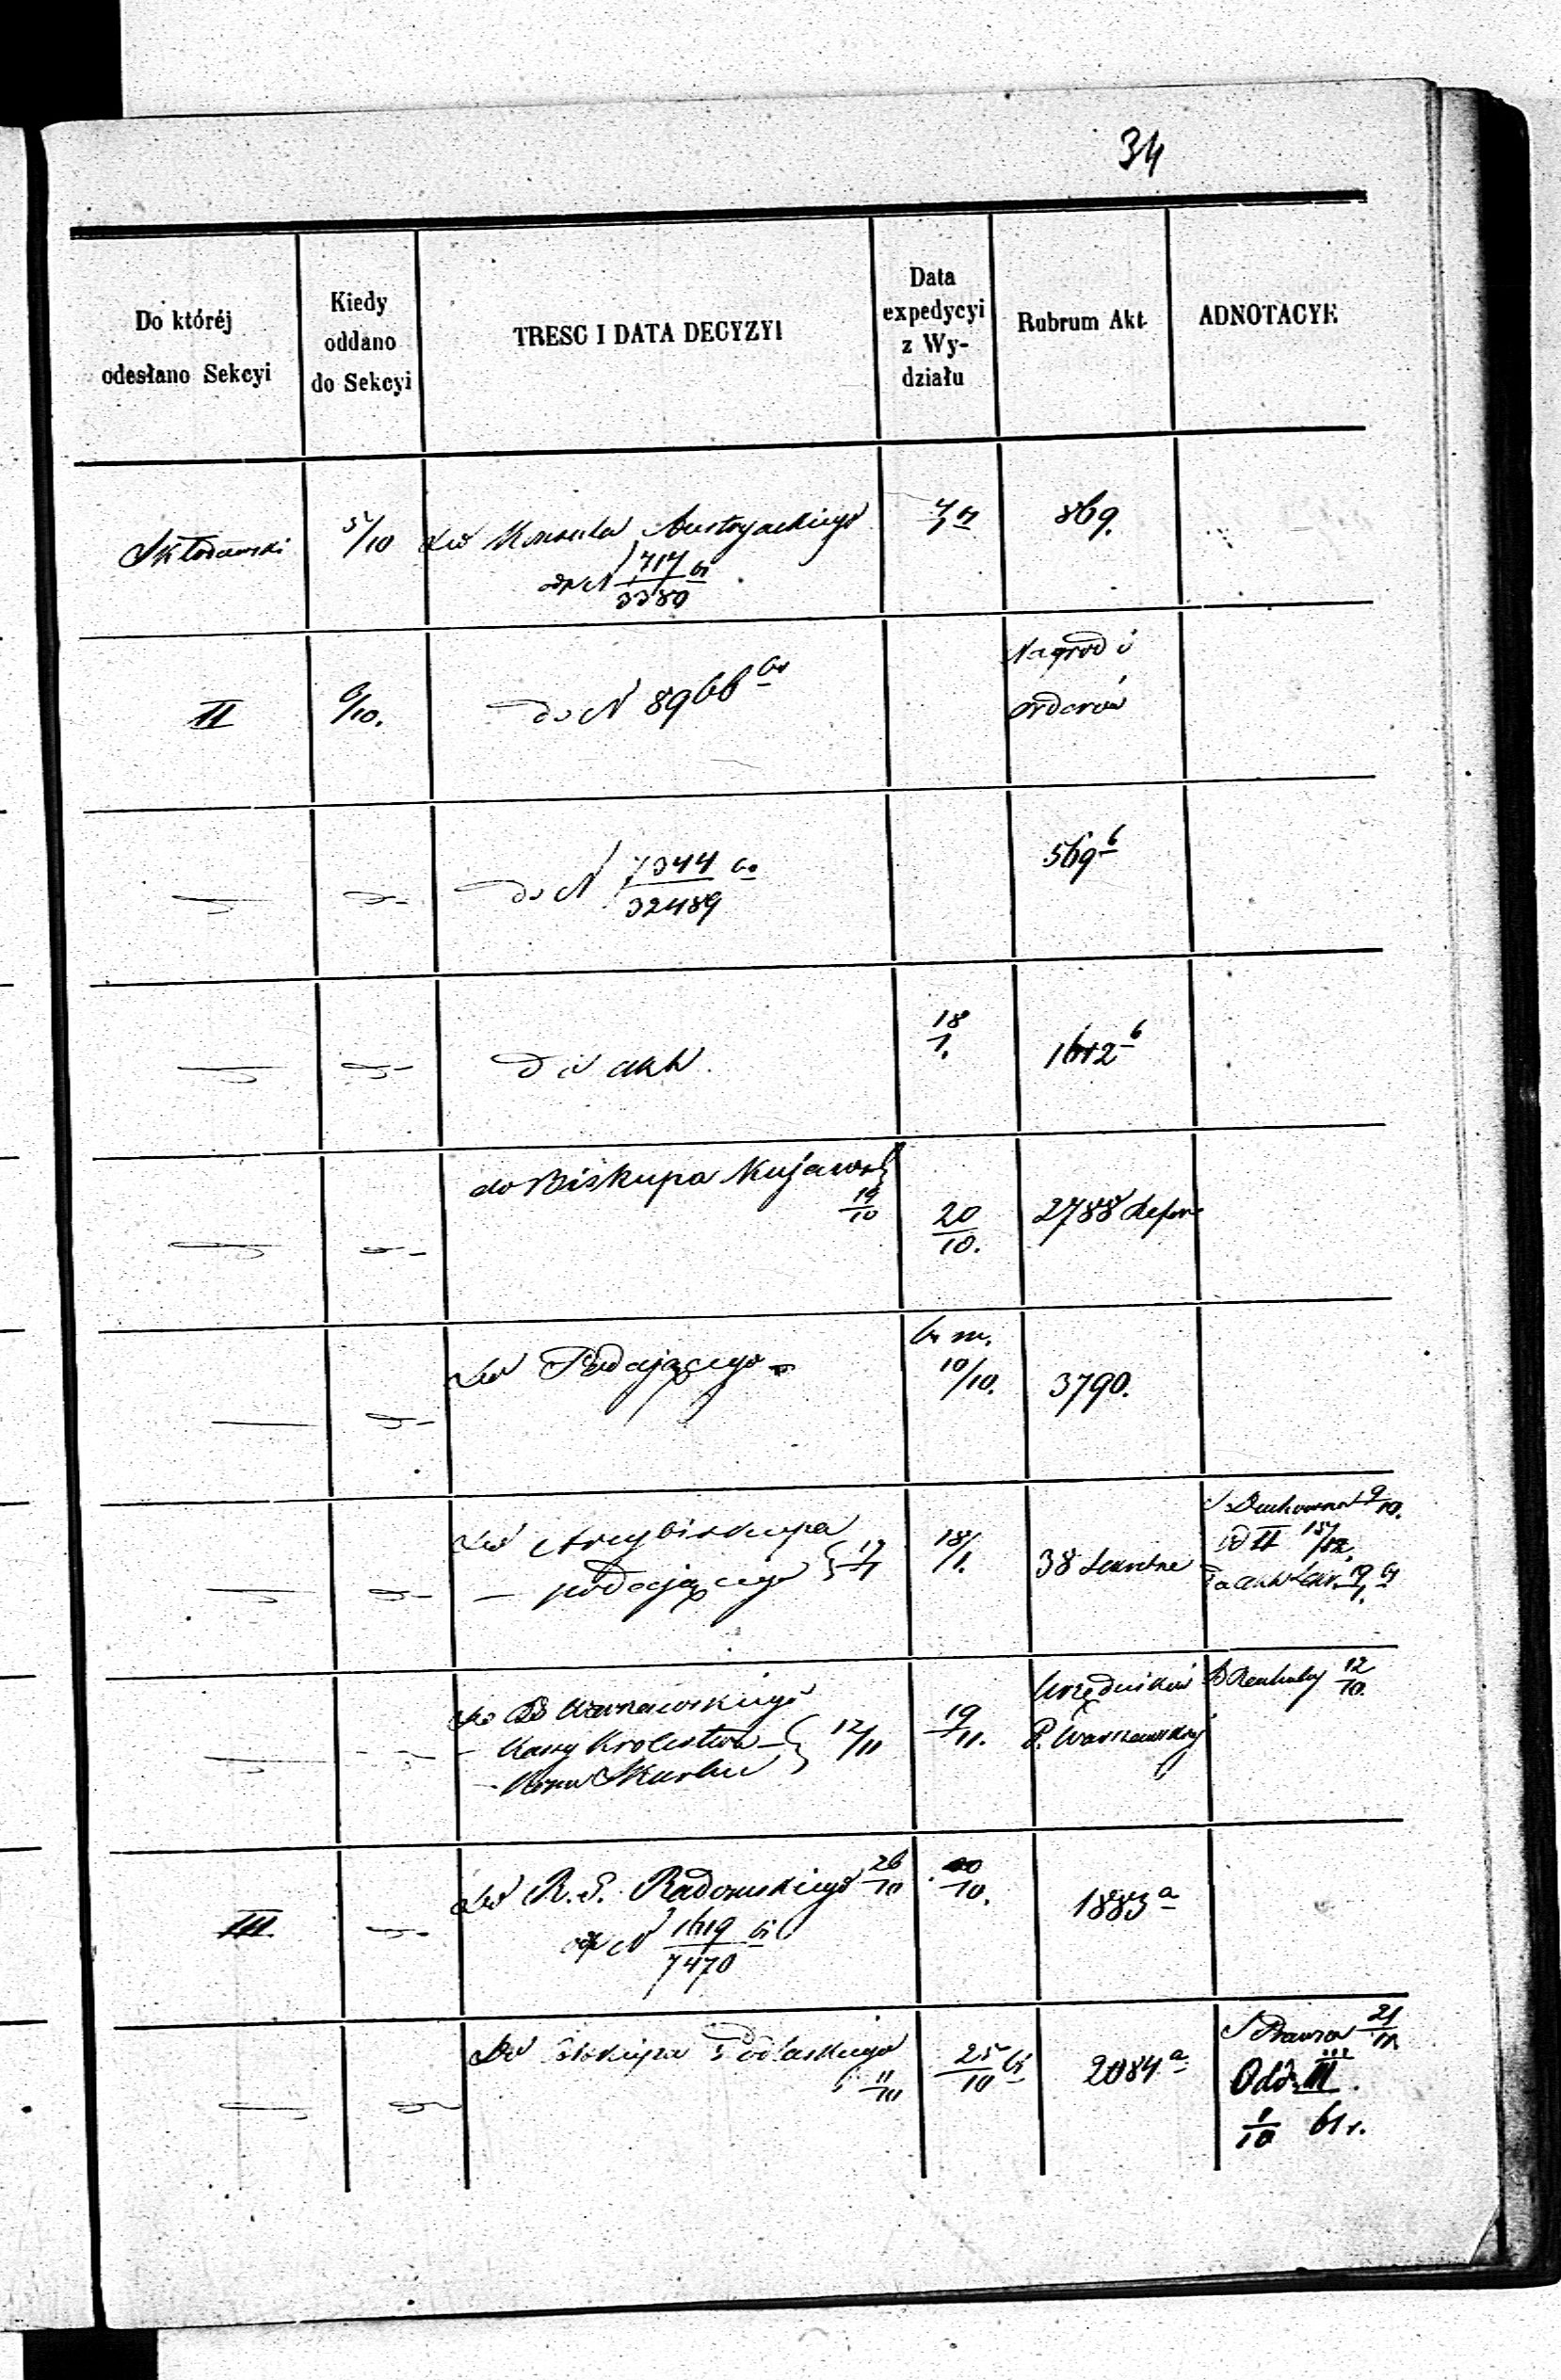 34
Do któréj
odesłano Sekcyi
Kiedy
oddano
do Sekcyi
TRESC I DATA DECYZYI
Data
expedycyi
z Wy-
działu
Rubrum Akt.
ADNOTACYE
Skłodowski
5/10
do Konsula Austryackiego
odp N 717/3380
869.
II
6/10.
do N 8966
Nagrod i
orderów
do N 7344/32489
569 b
do akt.
18/1.
1612 b
do Biskupa Kujaws
19/10
20/10.
2788
do Podającego
10/10.
3790.
do Arcybiskupa
— podającego
18/1.
38 Sekretne
S. Duchowna 9/10.
od II
Warszawskiego
— Kassy Królestwa
— Skarbu
12/11
19/11.
Urzędników
P. Warszawskiej
12/10.
III.
do R. G. Radomskiego 26/10
odp N 1619/7470
/10.
1883 a
Do Biskupa Podlaskiego
11/10
25/10
2084 a
S Prawna
Odd. III.
61 r.